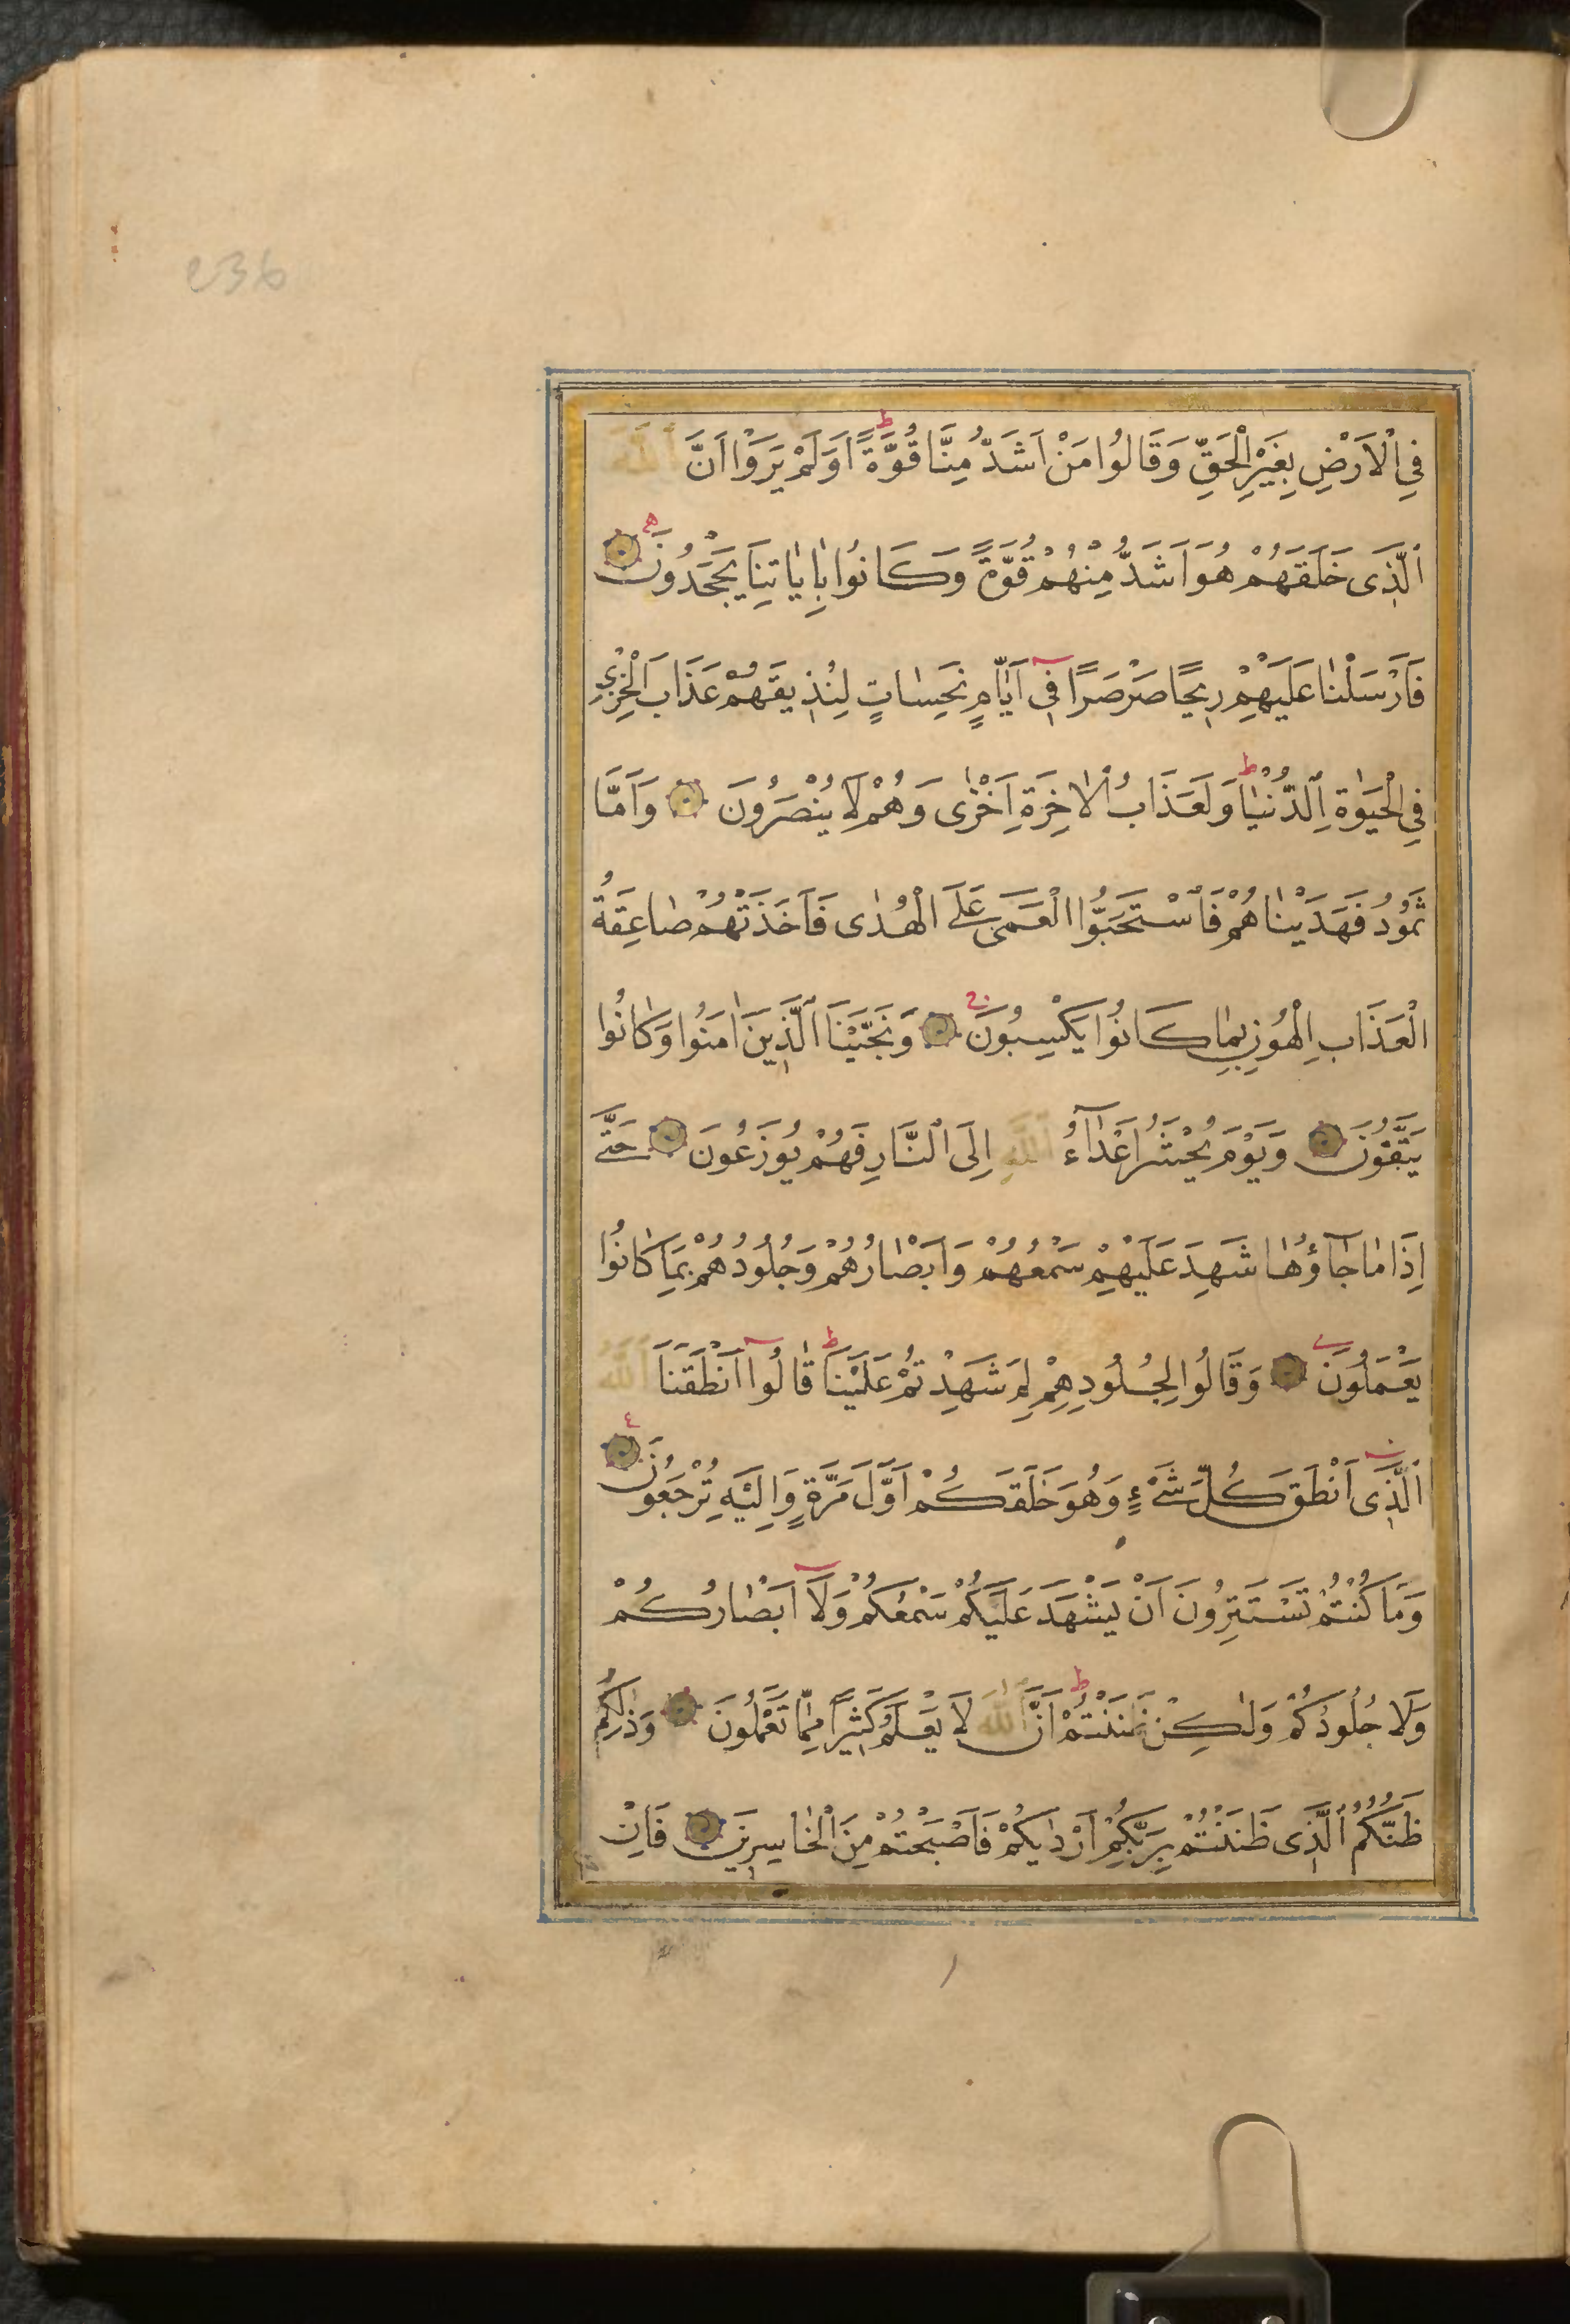 236
فِي الْاَرْضِ بِغَيْرِ الْحَقِّ وَقَالُوا مَنْ اَشَدُّ مِنَّا قُوَّةً ط اَوَلَمْ يَرَوْا اَنَّ اللّٰهَ
الَّذِى خَلَقَهُمْ هُوَ اَشَدُّ مِنْهُمْ قُوَّةً وَكَانُوا بِاٰيَاتِنَا يَجْحَدُونَ ه
فَاَرْسَلْنٰا عَلَيْهِمْ رِيحًا صَرْصَرًا فِى اَيّٰامٍ نَحِسٰاتٍ لِنُذِيقَهُمْ عَذَابَ الْخِزْيِ
فِي الْحَيٰوةِ الدُّنْيٰا ط وَلَعَذَابُ الْاٰخِرَةِ اَخْزٰى وَهُمْ لَا يُنْصَرُونَ وَاَمَّا
ثَمُودُ فَهَدَيْنٰاهُمْ فَاسْتَحَبُّوا الْعَمَى عَلَى الْهُدٰى فَاَخَذَتْهُمْ صٰاعِقَةُ
الْعَذَابِ الْهُونِ بِمٰا كَانُوا يَكْسِبُونَ وَنَجَّيْنَا الَّذِينَ اٰمَنُوا وَكٰانُوا
يَتَّقُونَ وَيَوْمَ يُحْشَرُ اَعْدٰٓاءُ اللّٰهِ اِلَى النَّارِ فَهُمْ يُوزَعُونَ حَتّٰى
اِذَا مٰا جٰٓاؤُهٰا شَهِدَ عَلَيْهِمْ سَمْعُهُمْ وَاَبْصٰارُهُمْ وَجُلُودُهُمْ بِمَا كَانُوا
يَعْمَلُونَ وَقَالُوا لِجُلُودِهِمْ لِمَ شَهِدْتُمْ عَلَيْنَا ط قٰالُوٓا اَنْطَقَنَا اللّٰهُ
الَّذِى اَنْطَقَ كُلَّ شَىْءٍ وَهُوَ خَلَقَكُمْ اَوَّلَ مَرَّةٍ وَاِلَيْهِ تُرْجَعُونَ ع
وَمَا كُنْتُمْ تَسْتَتِرُونَ اَنْ يَشْهَدَ عَلَيْكُمْ سَمْعُكُمْ وَلَآ اَبْصٰارُكُمْ
وَلَا جُلُودُكُمْ وَلٰكِنْ ظَنَنْتُمْ ط اَنَّ اللّٰهَ لَا يَعْلَمُ كَثِيرًا مِمَّا تَعْمَلُونَ وَذٰلِكُمْ
ظَنُّكُمُ الَّذِى ظَنَنْتُمْ بِرَبِّكُمْ اَرْدٰيكُمْ فَاَصْبَحْتُمْ مِنَ الْخٰاسِرِينَ فَاِنْ